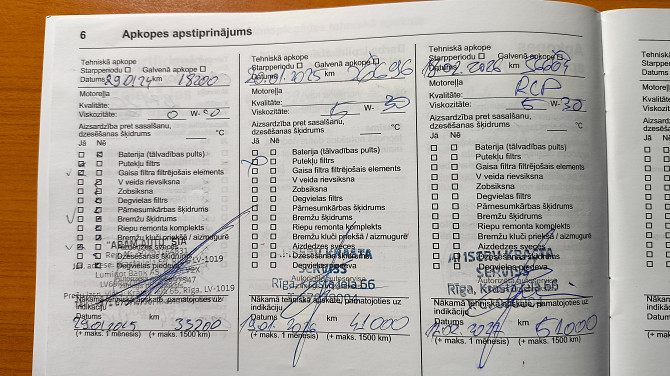 6 Apkopes apstiprinājums
Tehniskā apkope
Starpperiodu ☐ Galvenā apkope ☐
Datums 29.01.24 km 18200
Motoreļļa
Kvalitāte:
Viskozitāte: 0 W-20
Aizsardzība pret sasalšanu,
dzesēšanas šķidrums °C
Jā Nē
Baterija (tālvadības pults)
Putekļu filtrs
Gaisa filtra filtrējošais elements
V veida rievsiksna
Zobsiksna
Degvielas filtrs
Pārnesumkārbas šķidrums
Bremžu šķidrums
Riepu remonta komplekts
Bremžu kluči priekšā / aizmugurē
Aizdedzes sveces
Dzesēšanas šķidrums
Degvielas piedeva
"ABAM AUTO" SIA
LV-1019
Nākamā tehniskā apkope, pamatojoties uz
indikāciju
Datums km
29.01.2025 33200
(+ maks. 1 mēnesis) (+ maks. 1500 km)
Tehniskā apkope
Starpperiodu ☐ Galvenā apkope ☐
Datums 20.01.2025 km 26696
Motoreļļa
Kvalitāte:
Viskozitāte: 5 W-30
Aizsardzība pret sasalšanu,
dzesēšanas šķidrums °C
Jā Nē
Baterija (tālvadības pults)
Putekļu filtrs
Gaisa filtra filtrējošais elements
V veida rievsiksna
Zobsiksna
Degvielas filtrs
Pārnesumkārbas šķidrums
Bremžu šķidrums
Riepu remonta komplekts
Bremžu kluči priekšā / aizmugurē
Aizdedzes sveces
Dzesēšanas šķidrums
Degvielas piedeva
SERVISS
Autorizēts autoserviss
Rīga, Krasta iela 66
Nākamā tehniskā apkope, pamatojoties uz
indikāciju
Datums km
19.01.2026 41000
(+ maks. 1 mēnesis) (+ maks. 1500 km)
Tehniskā apkope
Starpperiodu ☐ Galvenā apkope ☐
Datums 02.2026 km
Motoreļļa
Kvalitāte:
Viskozitāte: 5 W-30
Aizsardzība pret sasalšanu,
dzesēšanas šķidrums °C
Jā Nē
Baterija (tālvadības pults)
Putekļu filtrs
Gaisa filtra filtrējošais elements
V veida rievsiksna
Zobsiksna
Degvielas filtrs
Pārnesumkārbas šķidrums
Bremžu šķidrums
Riepu remonta komplekts
Bremžu kluči priekšā / aizmugurē
Aizdedzes sveces
Dzesēšanas šķidrums
Degvielas piedeva
SERVISS
Autorizēts autoserviss
Rīga, Krasta iela 66
Nākamā tehniskā apkope, pamatojoties uz
indikāciju
Datums km
02.2027 51000
(+ maks. 1 mēnesis) (+ maks. 1500 km)